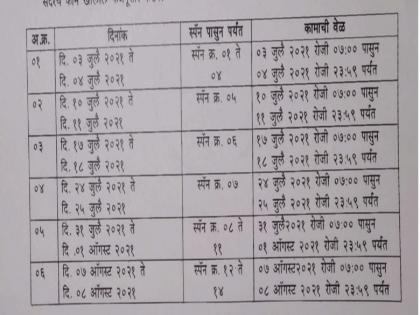 अ.क्र. दिनांक स्पॅन पासुन पर्यंत कामाची वेळ
०१ दि. ०३ जुलै २०२१ ते स्पॅन क्र. ०१ ते ०३ जुलै २०२१ रोजी ०७:०० पासुन
दि. ०४ जुलै २०२१ ०४ ०४ जुलै २०२१ रोजी २३:५९ पर्यंत
०२ दि. १० जुलै २०२१ ते स्पॅन क्र. ०५ १० जुलै २०२१ रोजी ०७:०० पासुन
दि. ११ जुलै २०२१ ११ जुलै २०२१ रोजी २३:५९ पर्यंत
०३ दि. १७ जुलै २०२१ ते स्पॅन क्र. ०६ १७ जुलै २०२१ रोजी ०७:०० पासुन
दि. १८ जुलै २०२१ १८ जुलै २०२१ रोजी २३:५९ पर्यंत
०४ दि. २४ जुलै २०२१ ते स्पॅन क्र. ०७ २४ जुलै २०२१ रोजी ०७:०० पासुन
दि. २५ जुलै २०२१ २५ जुलै २०२१ रोजी २३:५९ पर्यंत
०५ दि. ३१ जुलै २०२१ ते स्पॅन क्र. ०८ ते ३१ जुलै२०२१ रोजी ०७:०० पासुन
दि .०१ ऑगस्ट २०२१ ११ ०१ ऑगस्ट २०२१ रोजी २३:५९ पर्यंत
०६ दि. ०७ ऑगस्ट २०२१ ते स्पॅन क्र. १२ ते ०७ ऑगस्ट२०२१ रोजी ०७:०० पासुन
दि. ०८ ऑगस्ट २०२१ १४ ०८ ऑगस्ट २०२१ रोजी २३:५९ पर्यंत